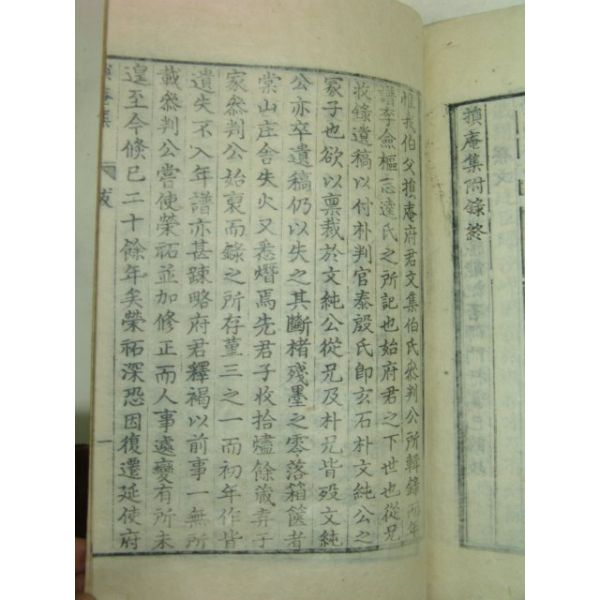 損庵集附錄終
惟我伯父損庵府君文集伯氏參判公所輯錄而年
譜李僉樞志達氏之所記也始府君之下世也從兄
收錄遺稿以付朴判官泰殷氏卽玄石朴文純公之
冢子也欲以稟裁於文純公從兄及朴兄皆歿文純
公亦卒遺稿仍以失之其斷楮殘墨之零落箱篋者
棠山庄舍失火又悉燼焉先君子收拾燼餘藏弆于
家參判公始裒而錄之所存菫三之一而初年作皆
遺失不入年譜亦甚踈略府君釋褐以前事一無所
載參判公嘗使榮祏並加修正而人事遽變有所未
遑至今倏已二十餘年矣榮祏深恐因復遷延使府
損庵集 跋 一